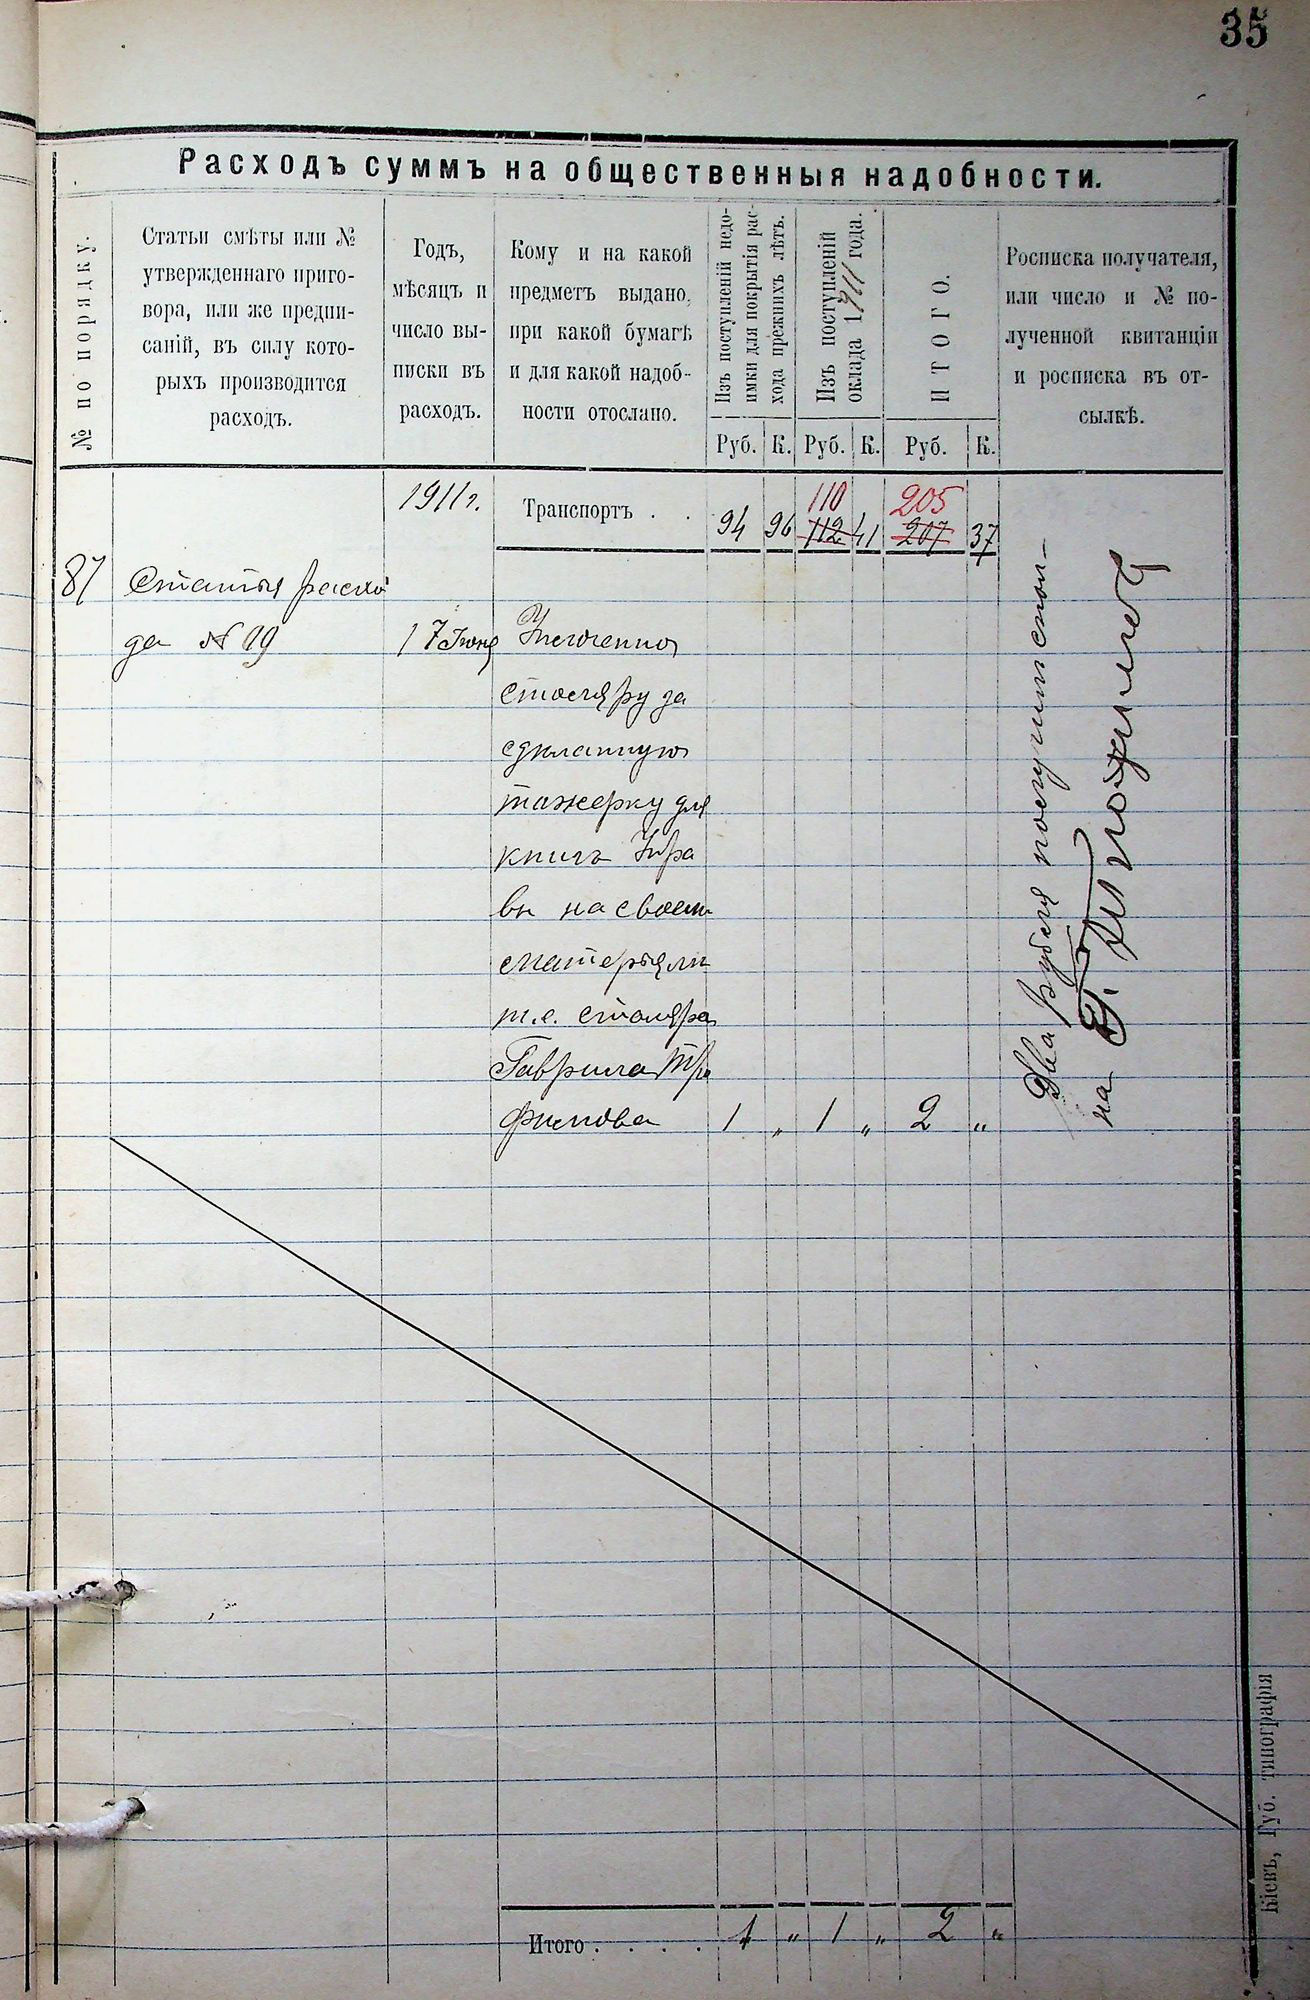 35
Расходъ суммъ на общественныя надобности.
№ по порядку.
Статьи смѣты или №
утвержденнаго приго-
вора, или же предпи-
саній, въ силу кото-
рыхъ производится
расходъ.
Годъ,
мѣсяцъ и
число вы-
писки въ
расходъ.
Кому и на какой
предметъ выдано,
при какой бумагѣ
и для какой надоб-
ности отослано.
Изъ поступленій недо-
имки для покрытія рас-
хода прежнихъ лѣтъ.
Руб. К.
Изъ поступленій
оклада 1911 года.
Руб. К.
ИТОГО.
Руб. К.
Росписка получателя,
или число и № по-
лученной квитанціи
и росписка въ от-
сылкѣ.
1911 г.
Транспортъ . .
94 96
110
112 41
205
207 37
87
Статья расхо
да № 19
17 Іюня
Уплочено
столяру за
сдѣланную
тажерку для
книгъ Упра
вы на своем
матерьяли
т.е. столяра
Гаврила Тро
фимова 1 „ 1 „ 2 „
Два рубля получит спол-
на
Итого . . . . 1 „ 1 „ 2 „
Кіевъ, Губ. типографія